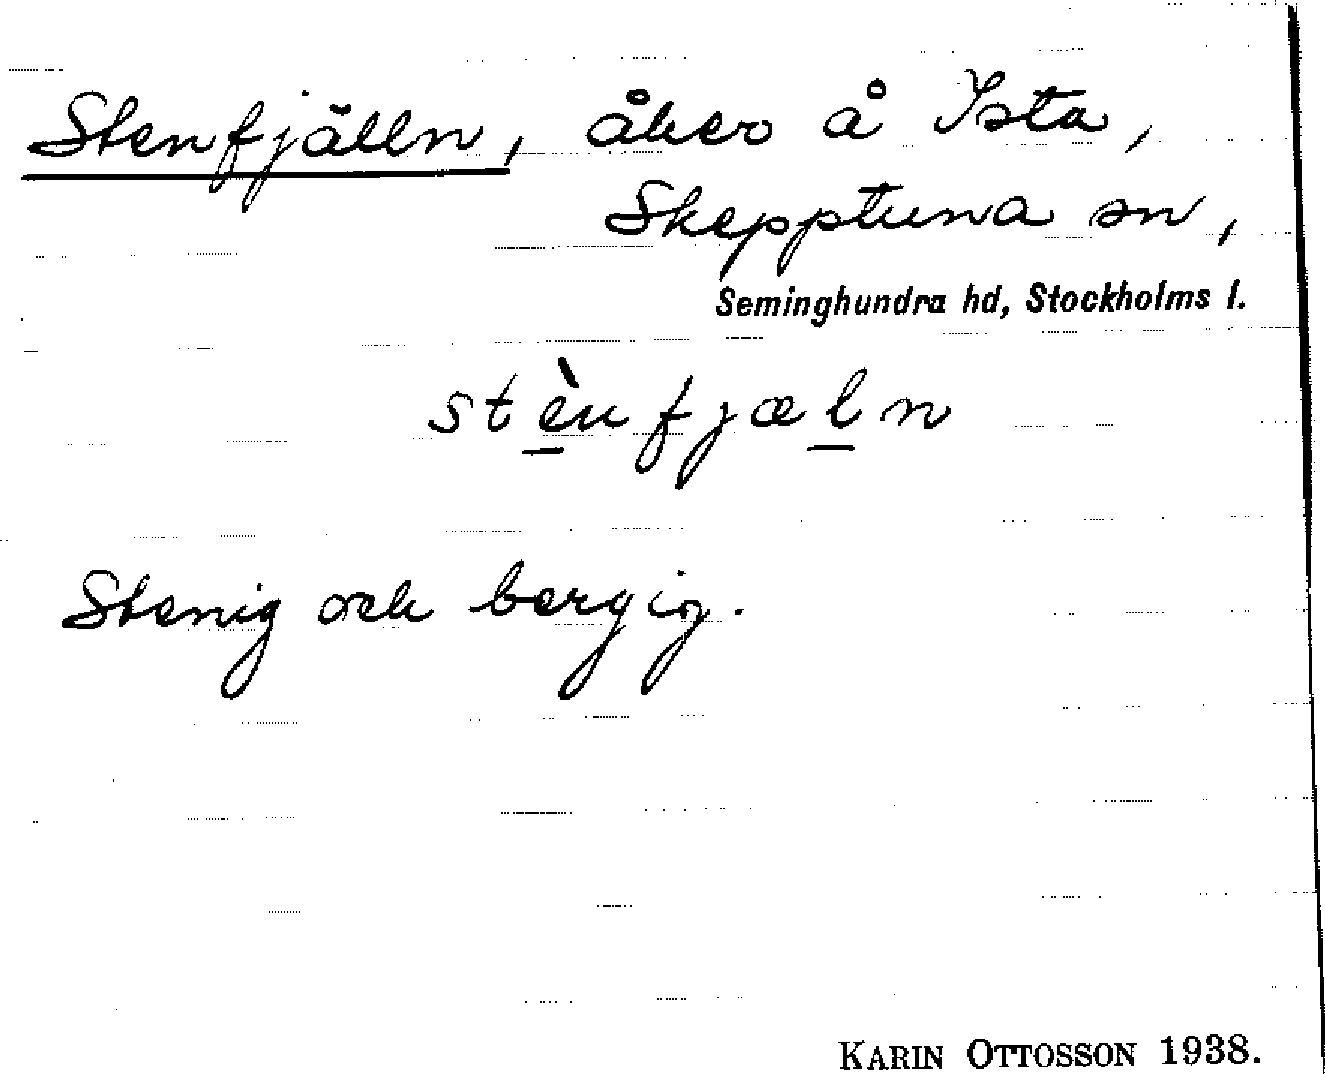 Stenfjälln, åker å Ysta,
Skepptuna sn,
Seminghundra hd, Stockholms l.
stènfjæln
Stenig och bergig.
KARIN OTTOSSON 1938.